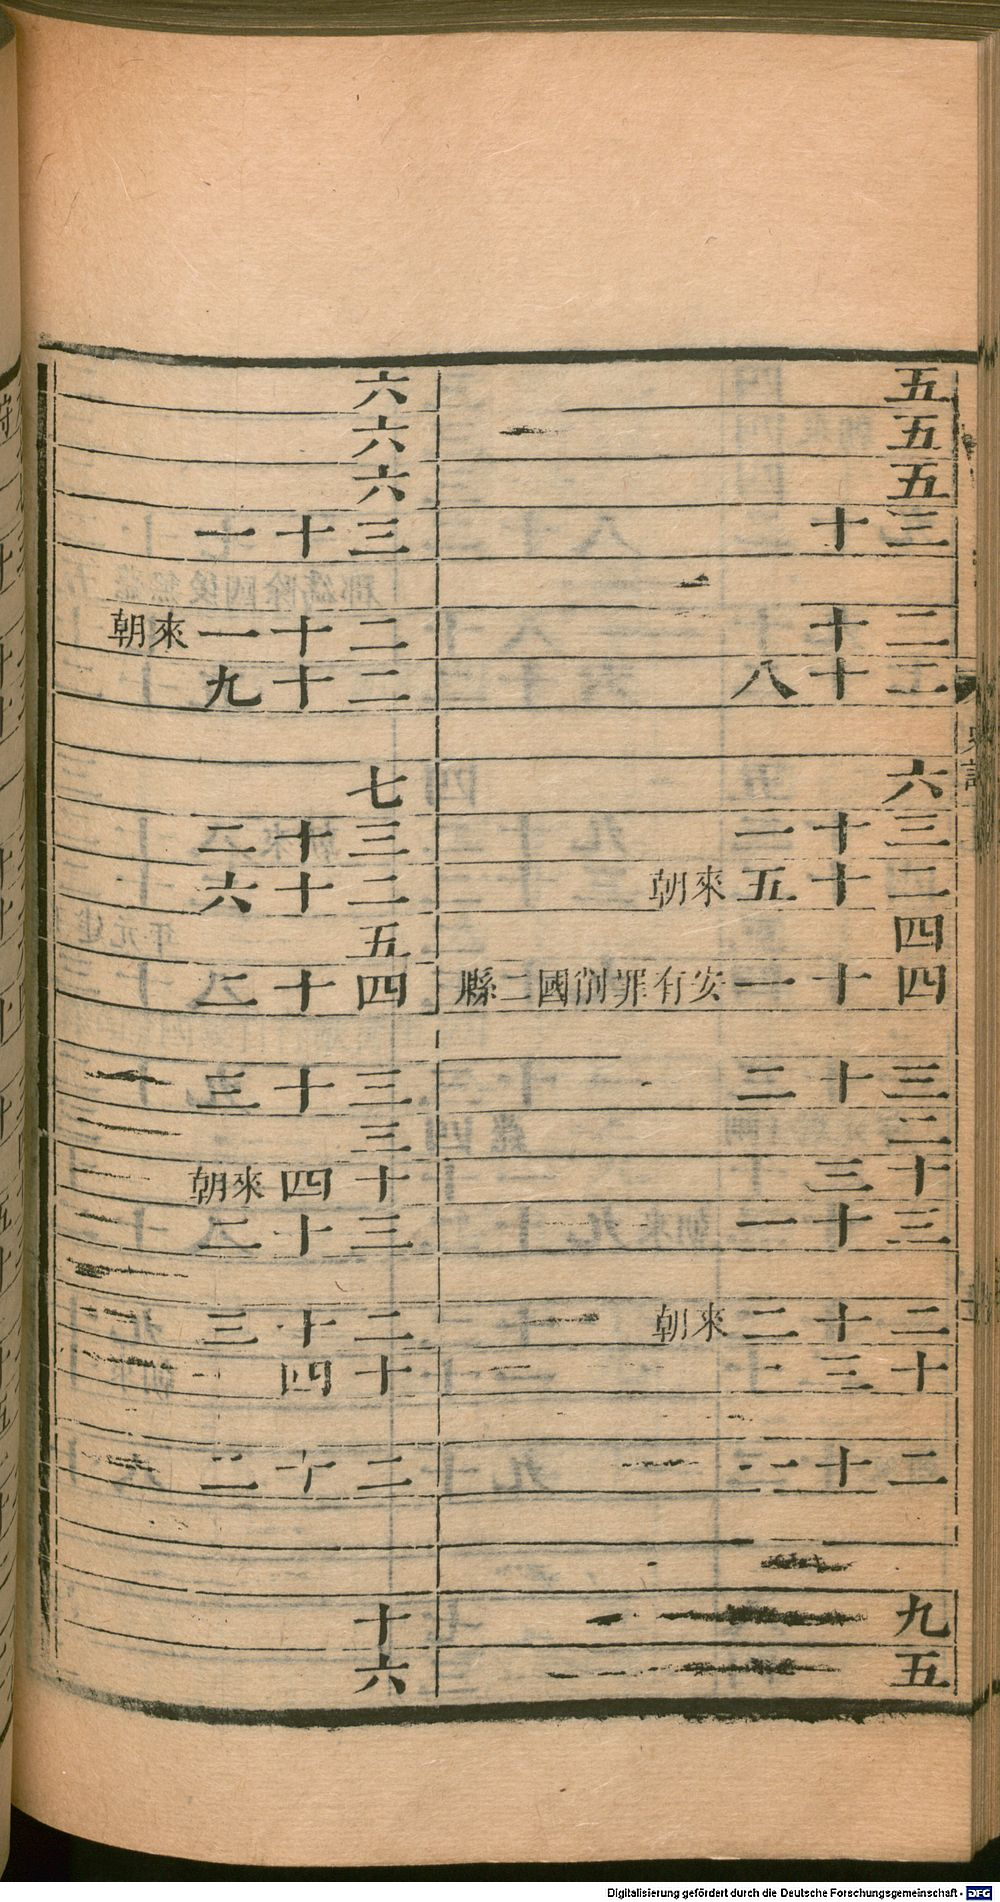 五
五
五
三十
二十
二十八
六
三十一
二十五來朝
四
四十一安有罪削國二縣
三十二
二
十三
三十一
二十二來朝
十三
二十一
九
五
六
六
六
三十一
二十一來朝
二十九
七
三十二
二十六
五
四十二
三十三
三
十四來朝
三十二
二十三
十四
二十二
十
六
Digitalisierung gefördert durch die Deutsche Forschungsgemeinschaft - DFG